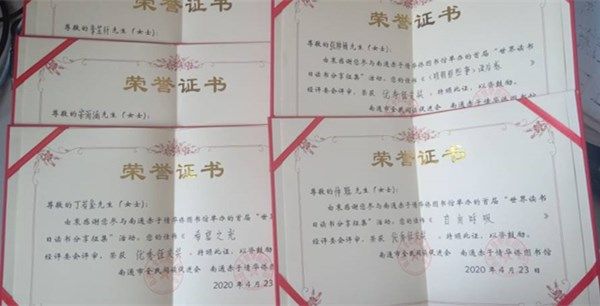 荣誉证书
尊敬的
先生（女士）：
荣誉证书
尊敬的
先生（女士）：
荣誉证书
尊敬的
先生（女士）：
由衷感谢您参与南通赤子情华侨图书馆举办的首届“世界读书
日读书分享征集”活动。您的佳作《
》读后感
经评委会评审，荣获 优秀征文奖 ，特颁此证，以资鼓励。
南通市全民阅读促进会 南通赤子情华侨图书馆
荣誉证书
尊敬的
先生（女士）：
由衷感谢您参与南通赤子情华侨图书馆举办的首届“世界
日读书分享征集”活动。您的佳作《 希望之光
经评委会评审，荣获 优秀征文奖 ，特颁此证，以资鼓励。
南通市全民阅读促进会 南通赤子情华侨图
2020 年 4 月 2
荣誉证书
尊敬的
先生（女士）：
由衷感谢您参与南通赤子情华侨图书馆举办的首届“世界读书
日读书分享征集”活动。您的佳作《 自由呼吸 》
经评委会评审，荣获 优秀征文奖 ，特颁此证，以资鼓励。
南通市全民阅读促进会 南通赤子情华侨图书馆
2020 年 4 月 23 日